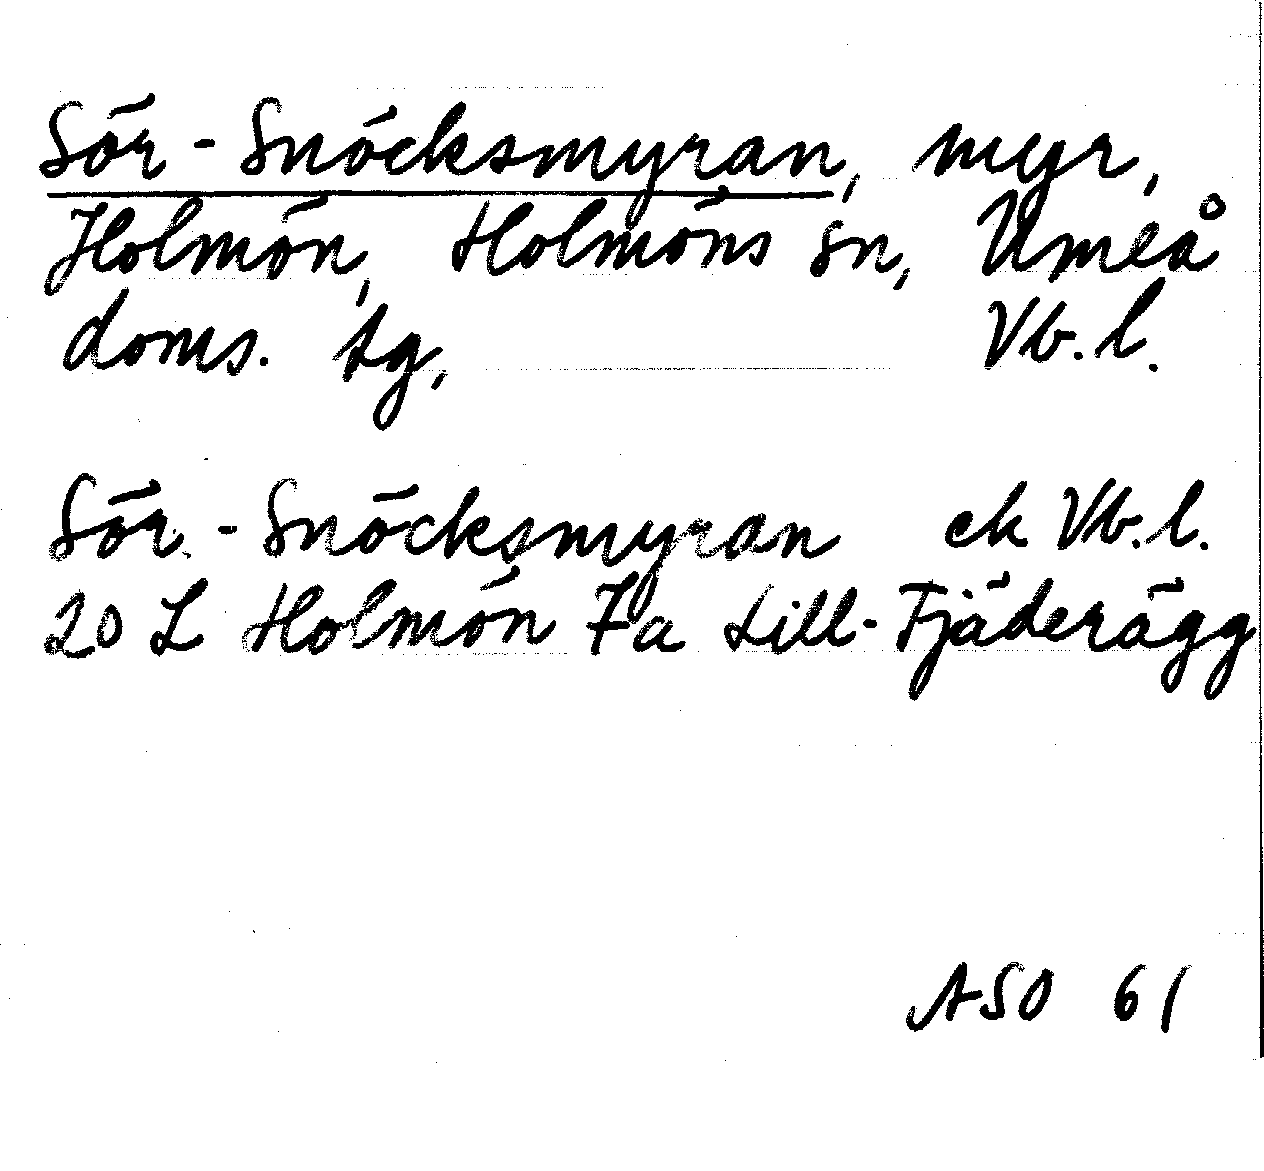 Sör-Snöcksmyran, myr,
Holmön, Holmöns sn, Umeå
doms. tg, Vb. l.
Sör-Snöcksmyran ek Vb. l.
20 L Holmön 7a Lill-Fjäderägg
ASO 61